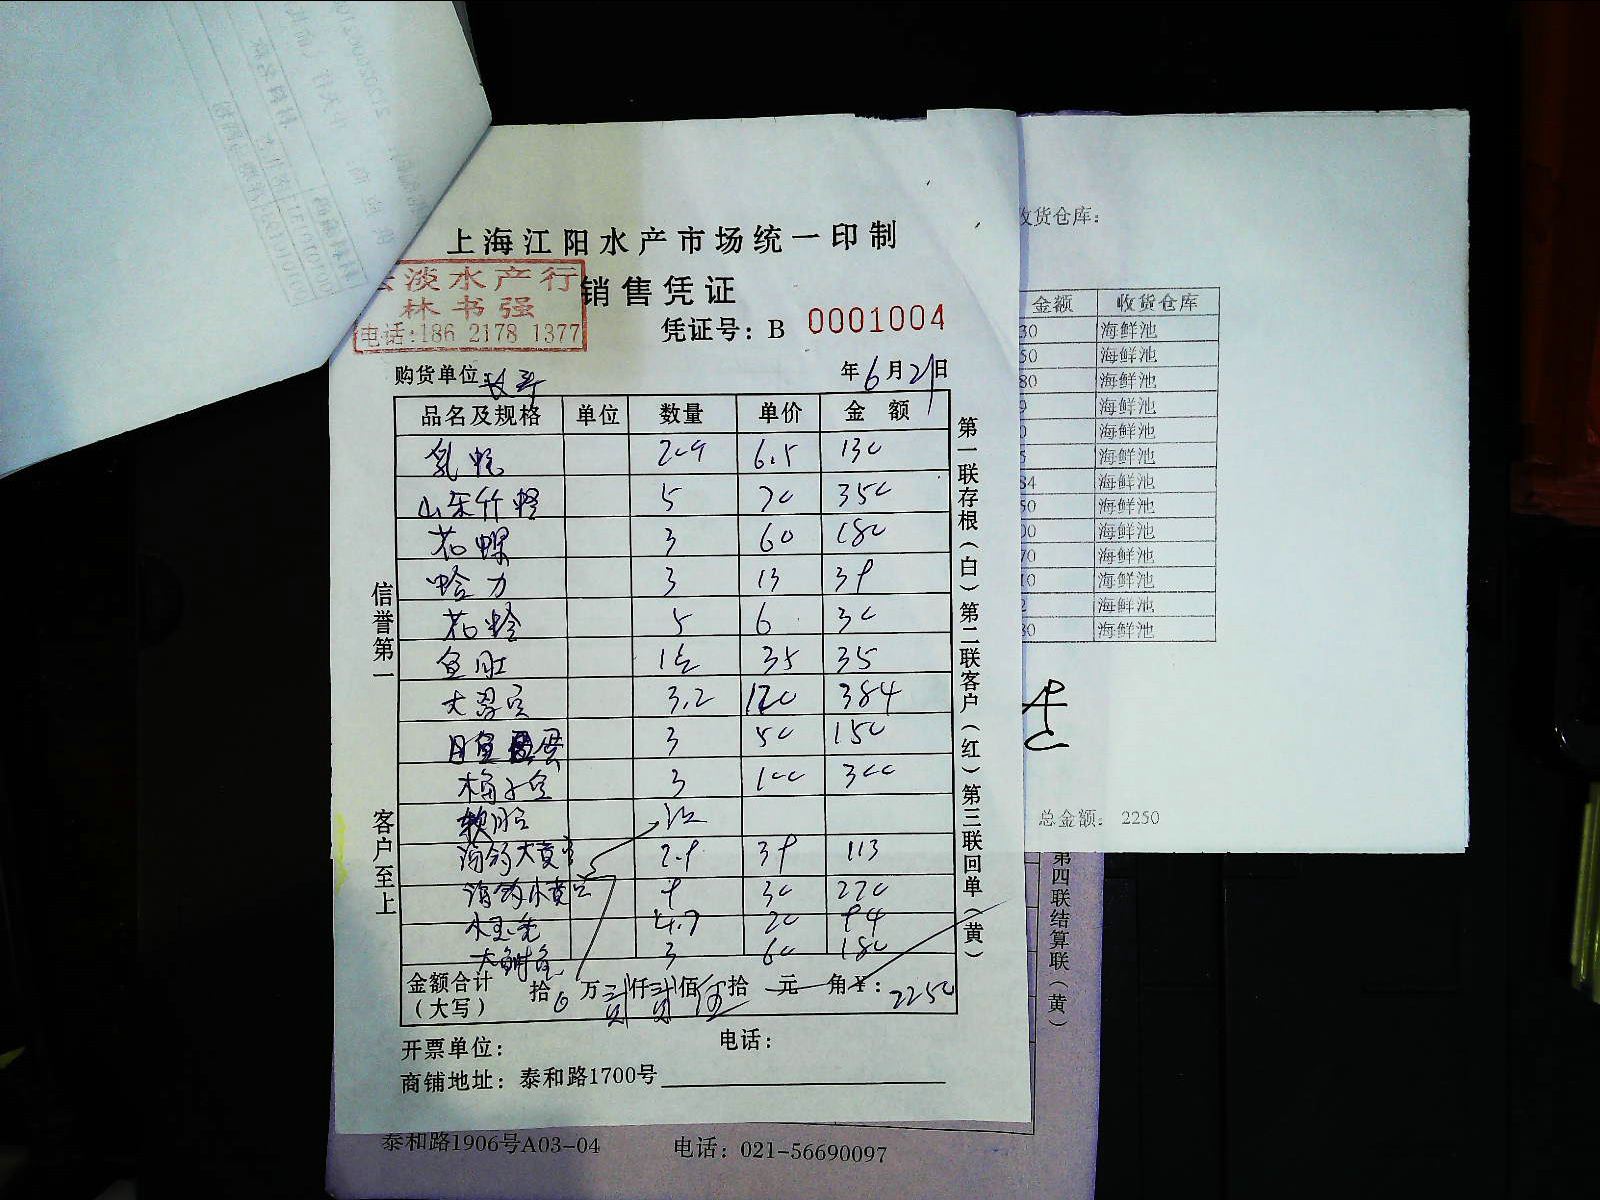 上海江阳水产市场统一印制
淡水产行
林书强
电话:186 2178 1377
销售凭证
凭证号：B 0001004
购货单位
年6月21日
品名及规格 单位 数量 单价 金 额
乳蚝 6.5 130
山东竹蛏 5 70 350
花螺 3 60 180
蛤力 3 13 39
花蛤 5 6 30
鱼肚 35 35
3.2 120 384
3 50 150
3 100 300
2.9 39 113
30 270
4.7 20 94
3 60 180
金额合计（大写） 拾 万 贰仟贰佰伍拾 元 角 ¥：2250
开票单位： 电话：
商铺地址：泰和路1700号
信誉第一
客户至上
第一联存根（白）第二联客户（红）第三联回单（黄）
收货仓库：
金额 收货仓库
30 海鲜池
50 海鲜池
80 海鲜池
9 海鲜池
0 海鲜池
5 海鲜池
84 海鲜池
50 海鲜池
00 海鲜池
70 海鲜池
10 海鲜池
2 海鲜池
80 海鲜池
总金额：2250
第四联结算联（黄）
泰和路1906号A03-04 电话：021-56690097